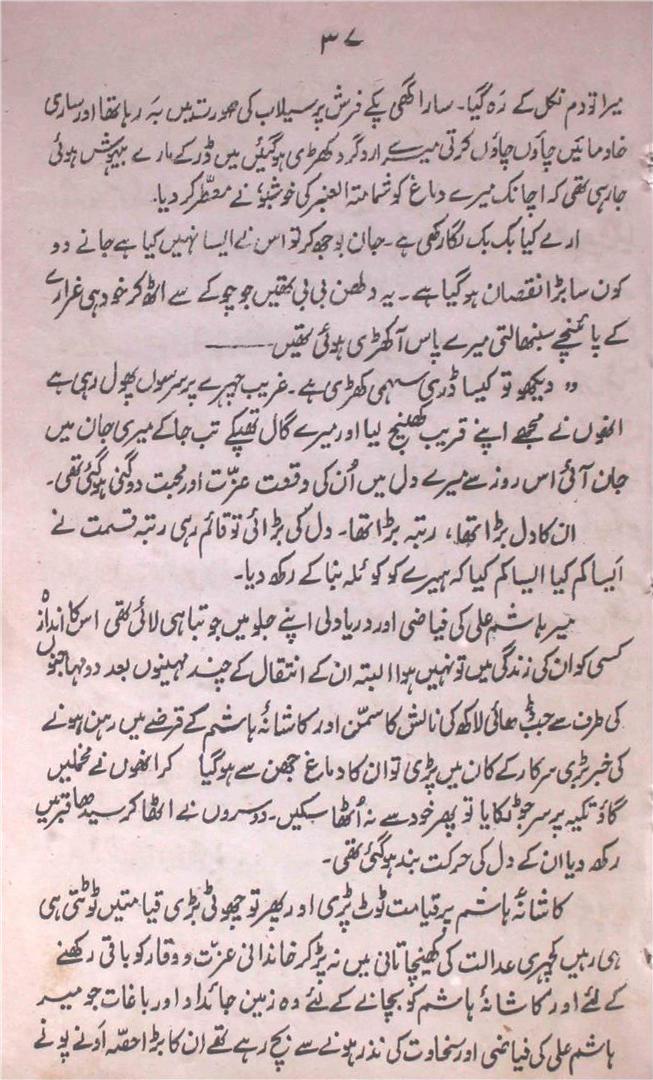 ۳۷
میرا تو دم نکل کے رَہ گیا۔ سارا گھی پکے فرش پر سیلاب کی صورت میں بَہ رہا تھا اور ساری
خادمائیں چاؤں چاؤں کرتی میرے اردگرد کھڑی ہو گیئں میں ڈر کے مارے بیہوش ہوئی
جا رہی تھی کہ اچانک میرے دماغ کو شمامتہ العنبر کی خوشبو نے معطّر کر دیا۔
ارے کیا بک بک لگا رکھی ہے۔ جان بوجھ کر تو اس نے ایسا نہیں کیا ہے جانے دو
کون سا بڑا نقصان ہو گیا ہے۔ یہ دلھن بی بی تھیں جو چوکے سے اٹھ کر خود ہی غرارے
کے پائینچے سنبھالتی میرے پاس آ کھڑی ہوئی تھیں ———
”دیکھو تو کیسا ڈری سہمی کھڑی ہے۔ غریب چہرے پر سرسوں پھول رہی ہے
انھوں نے مجھے اپنے قریب کھینچ لیا اور میرے گال تھپکے تب جا کے میری جان میں
جان آئی اس روز سے میرے دل میں اُن کی وقعت عزّت اور محبت دوگنی ہو گئی تھی۔
ان کا دل بڑا تھا، رتبہ بڑا تھا۔ دل کی بڑائی تو قائم رہی رتبہ قسمت نے
ایسا کم کیا ایسا کم کیا کہ ہیرے کو کوئلہ بنا کے رکھ دیا۔
میر ہاشم علی کی فیاضی اور دریا دلی اپنے جلو میں جو تباہی لائی تھی اس کا اندازہ
کسی کو ان کی زندگی میں تو نہیں ہوا البتہ ان کے انتقال کے چند مہینوں بعد دو مہاجنوں
کی طرف سے جب ڈھائی لاکھ کی نالش کا سمّن اور کاشانۂ ہاشم کے قرضے میں رہن ہونے
کی خبر بڑی سرکار کے کان میں پڑی تو ان کا دماغ جھن سے ہو گیا کر انھوں نے مخملیں
گاؤ تکیہ پر سر جو ٹکایا تو پھر خود سے نہ اُٹھا سکیں۔ دوسروں نے اٹھا کر سیدھا قبر میں
رکھ دیا ان کے دل کی حرکت بند ہو گئی تھی۔
کاشانۂ ہاشم پر قیامت ٹوٹ پڑی اور پھر تو چھوٹی بڑی قیامتیں ٹوٹتی ہی
ہی رہیں کچہری عدالت کی کھینچا تانی میں نہ پڑ کر خاندانی عزت و وقار کو باقی رکھنے
کے لئے اور کاشانۂ ہاشم کو بچانے کے لئے وہ زمین جائداد اور باغات جو میر
ہاشم علی کی فیاضی اور سخاوت کی نذر ہونے سے بچ رہے تھے ان کا بڑا حصّہ اَونے پونے